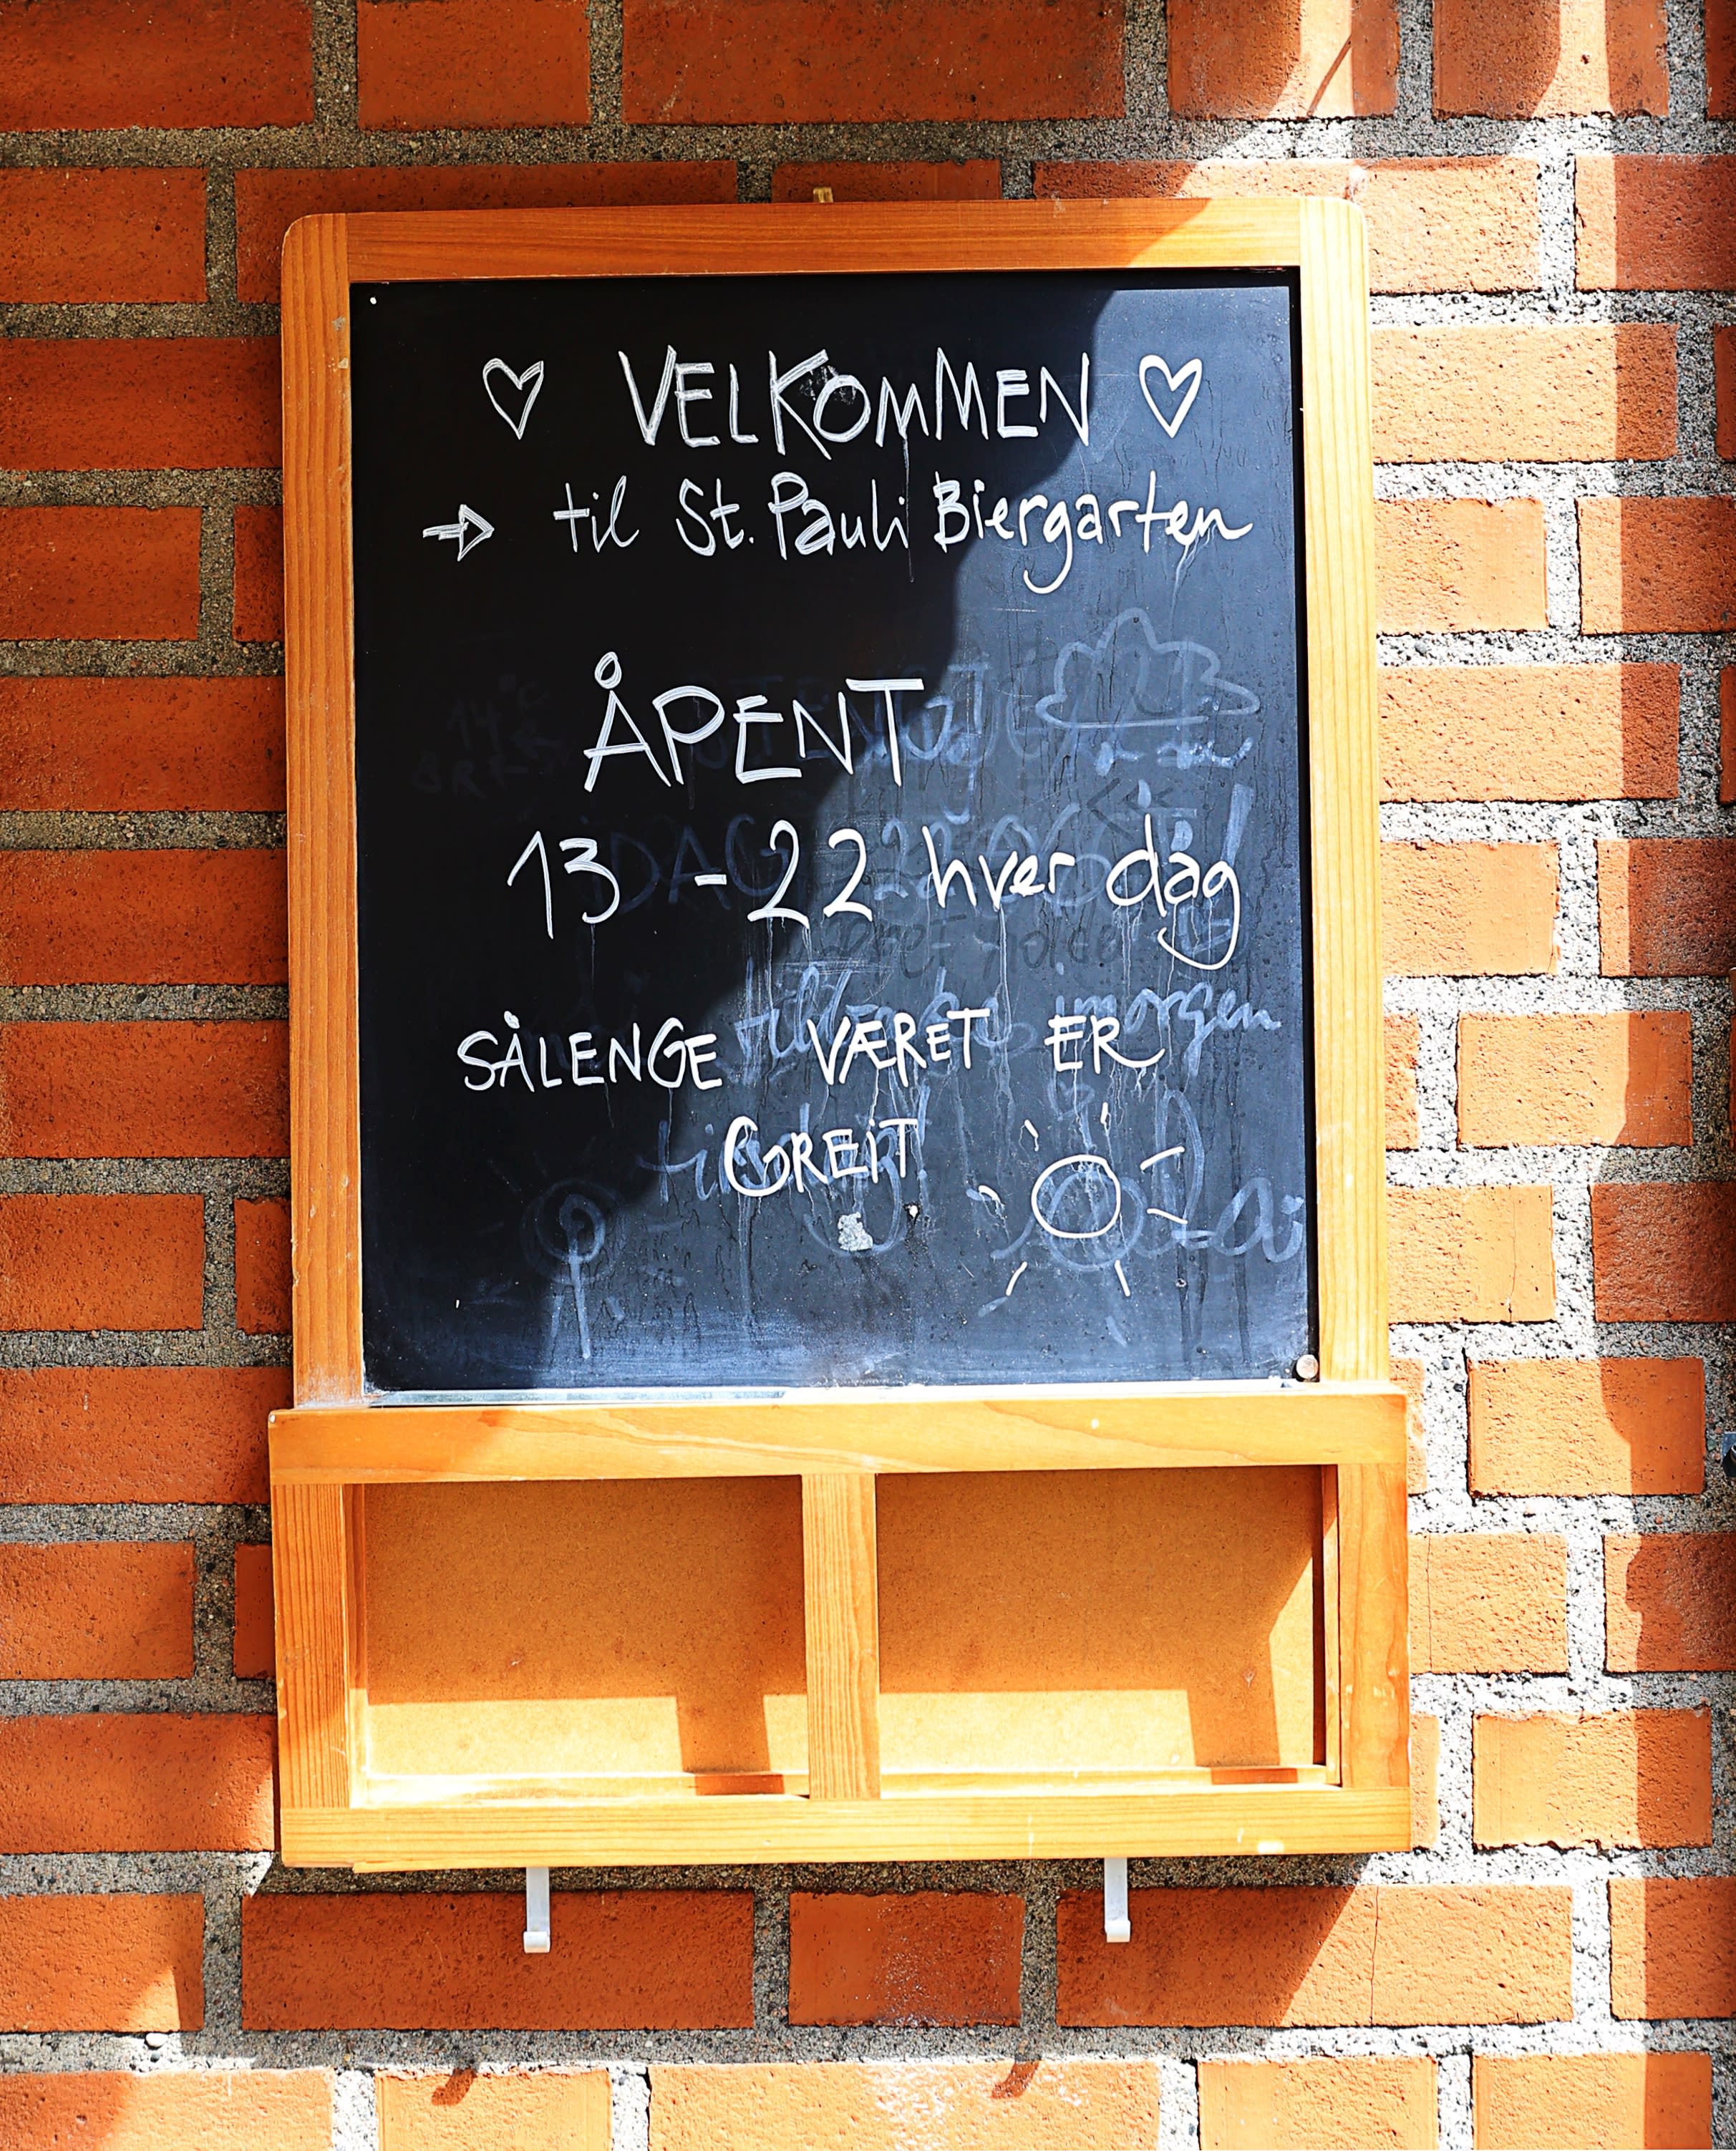 VELKOMMEN
til St. Pauli Biergarten
ÅPENT
13 - 22 hver dag
SÅLENGE VÆRET ER
GREIT